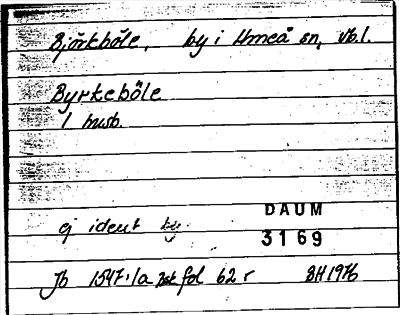 Björkböle, by i Umeå sn, Vb.l.
Byrkeböle
1 husb.
ej ident by.
DAUM
3169
Jb 1547:1a fol 62 r BH 1976